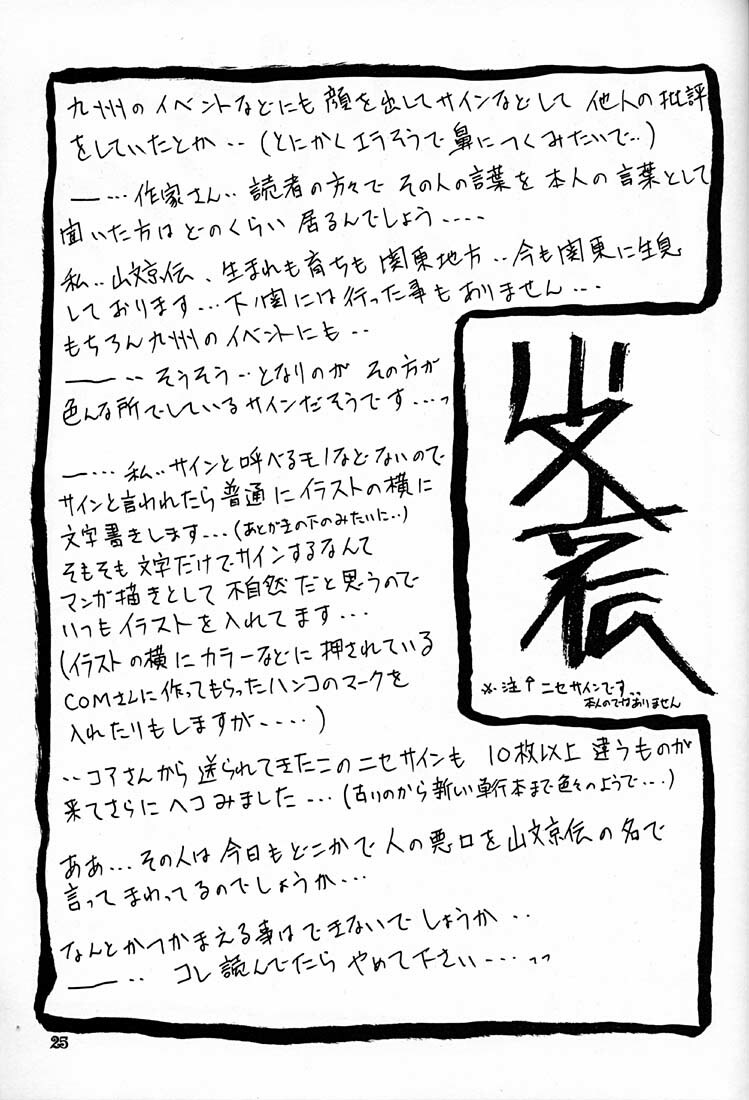 九州のイベントなどにも顔を出してサインなどして他人の批評
をしていたとか‥(とにかくエラそうで鼻につくみたいで‥)
―…作家さん‥読者の方々でその人の言葉を本人の言葉として
聞いた方はどのくらい居るんでしょう‥‥
私‥山文京伝、生まれも育ちも関東地方‥今も関東に生息
しております…下ノ関には行った事もありません…
もちろん九州のイベントにも‥
―‥そうそう‥となりのが その方が
色んな所でしているサインだそうです…っ
―…私‥サインと呼べるモノなどないので
サインと言われたら普通にイラストの横に
文字書きします…(あとがきの下のみたいに‥)
そもそも文字だけでサインするなんて
マンガ描きとして不自然だと思うので
いつもイラストを入れてます…
(イラストの横にカラーなどに押されている
COMさんに作ってもらったハンコのマークを
入れたりもしますが‥‥)
山文京伝
※注↑ニセサインです‥
本人のではありません
‥コアさんから送られてきたこのニセサインも10枚以上違うものが
来てさらにヘコみました…(古いのから新しい単行本まで色々のようで…)
ああ…その人は今日もどこかで人の悪口を山文京伝の名で
言ってまわってるのでしょうか…
なんとかつかまえる事はできないでしょうか‥
―‥コレ読んでたらやめて下さい‥‥っっ
25